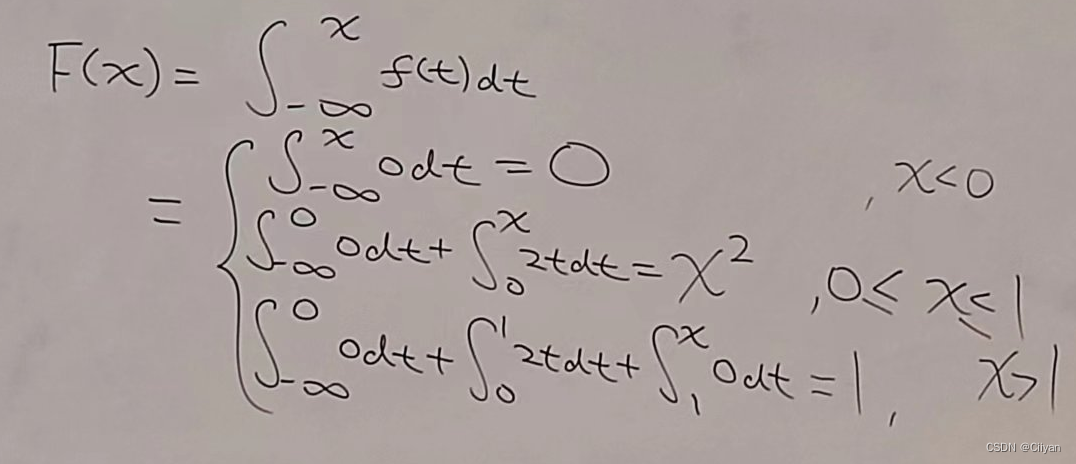 F(x) = ∫_{-∞}^{x} f(t)dt
= { ∫_{-∞}^{x} 0dt = 0 , x<0
∫_{-∞}^{0} 0dt + ∫_{0}^{x} 2tdt = x² , 0≤ x≤1
∫_{-∞}^{0} 0dt + ∫_{0}^{1} 2tdt + ∫_{1}^{x} 0dt = 1 , x>1
CSDN @Cilyan